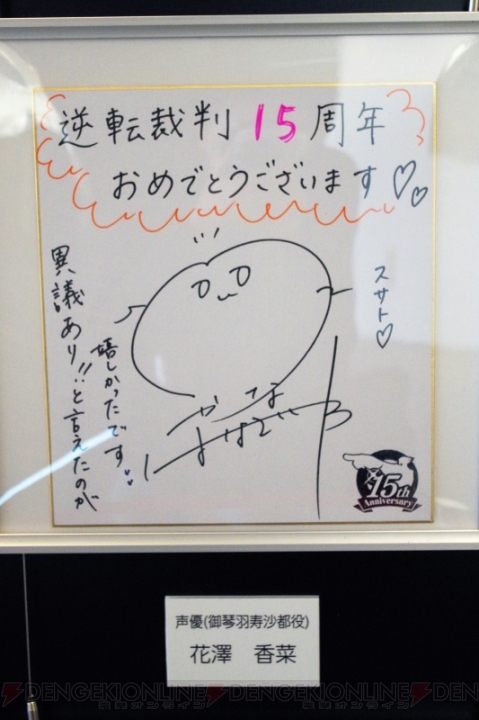 逆転裁判15周年
おめでとうございます♡♡
異議あり!!と言えたのが
嬉しかったです。
スサト♡
15th
Anniversary
声優(御琴羽寿沙都役)
花澤 香菜
DENGEKIONLINE DENGEKIONLINE
電撃オンライン